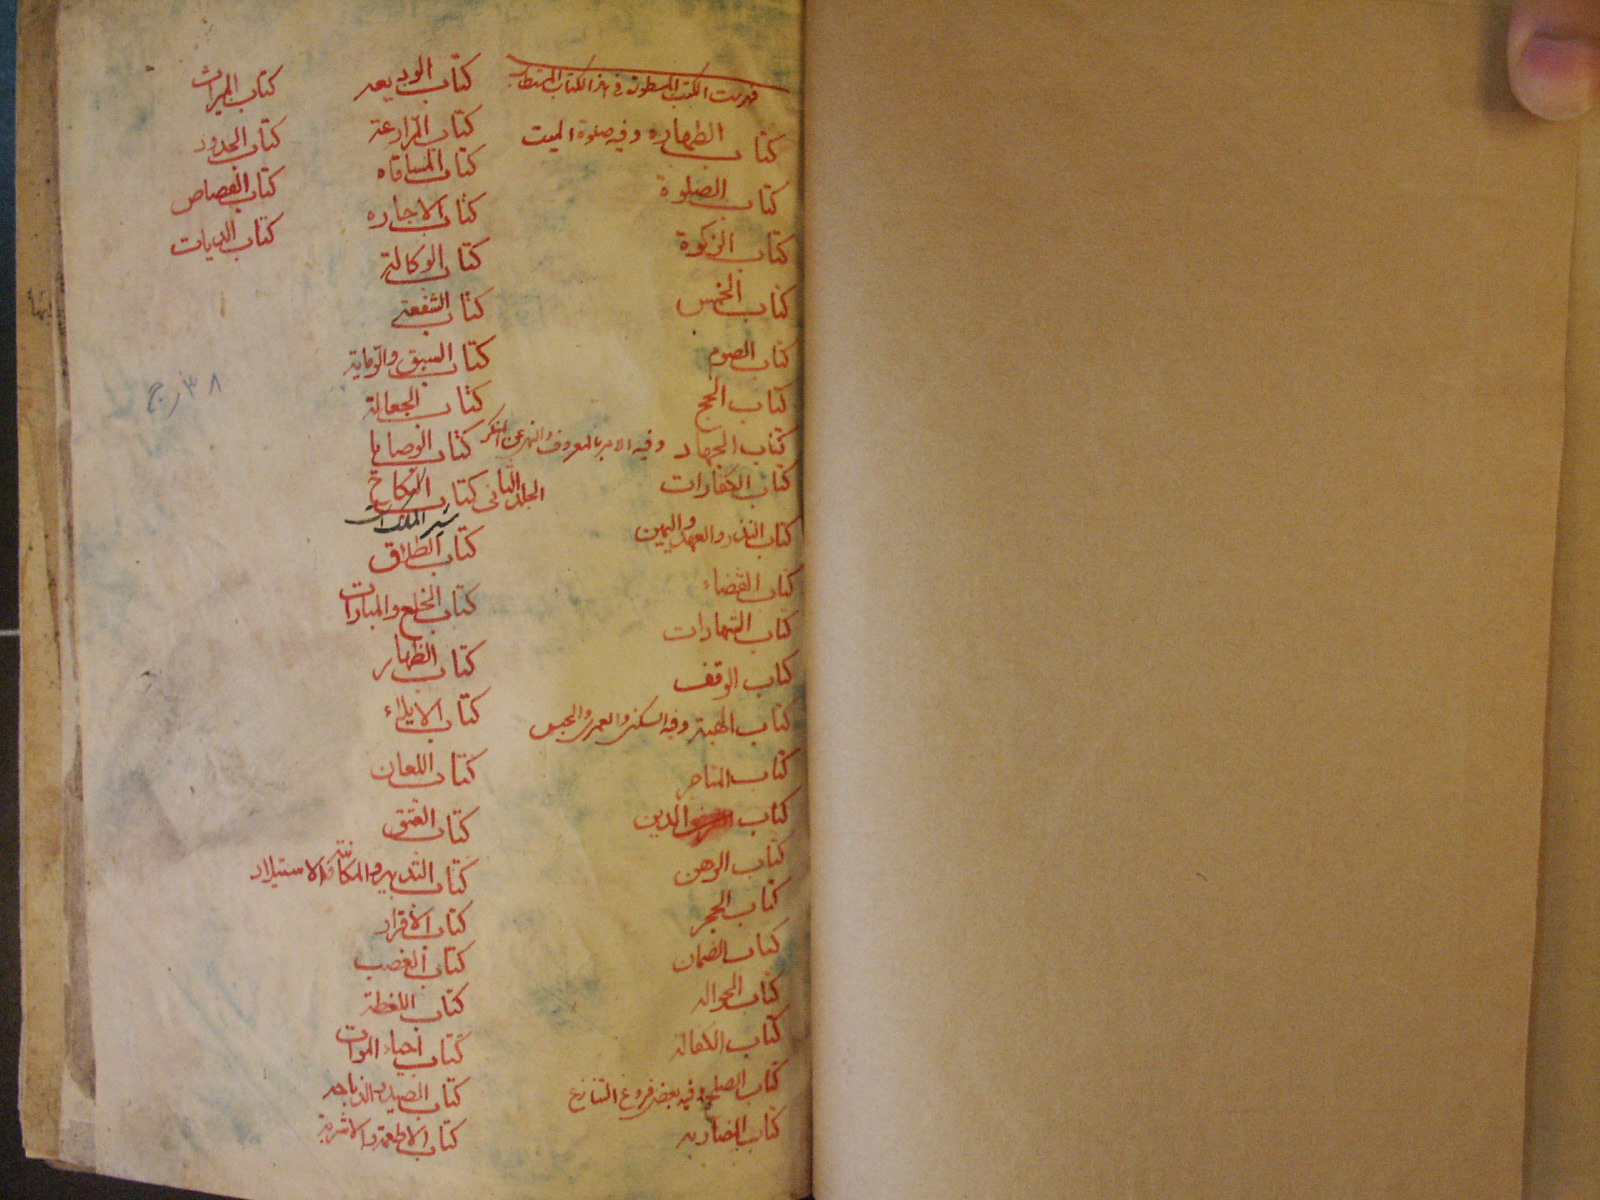 فهرست الكتب المسطورة في هذا الكتاب المستطاب
كتاب الطهاره وفيه صلوة الميت
كتاب الصلوة
كتاب الزكوة
كتاب الخمس
كتاب الصوم
كتاب الحج
كتاب الجهاد وفيه الامر بالمعروف والنهي عن المنكر
كتاب الكفارات
كتاب النذر والعهد واليمين
كتاب القضاء
كتاب الشهادات
كتاب الوقف
كتاب الهبة وفيه السكنى والعمرى والحبس
كتاب المتاجر
كتاب الدين
كتاب الرهن
كتاب الحجر
كتاب الضمان
كتاب الحواله
كتاب الكفالة
كتاب الصلح وفيه بعض فروع التنازع
كتاب المضاربه
كتاب الوديعه
كتاب المزارعة
كتاب المساقاه
كتاب الاجاره
كتاب الوكالة
كتاب الشفعة
كتاب السبق والرماية
كتاب الجعالة
كتاب الوصايا
الجلد الثاني كتاب النكاح
كتاب الطلاق
كتاب الخلع والمبارات
كتاب الظهار
كتاب الايلاء
كتاب اللعان
كتاب العتق
كتاب التدبير والمكاتبة والاستيلاد
كتاب الاقرار
كتاب الغصب
كتاب اللقطة
كتاب احياء الموات
كتاب الصيد والذباحه
كتاب الاطعمة والاشربة
كتاب الميراث
كتاب الحدود
كتاب القصاص
كتاب الديات